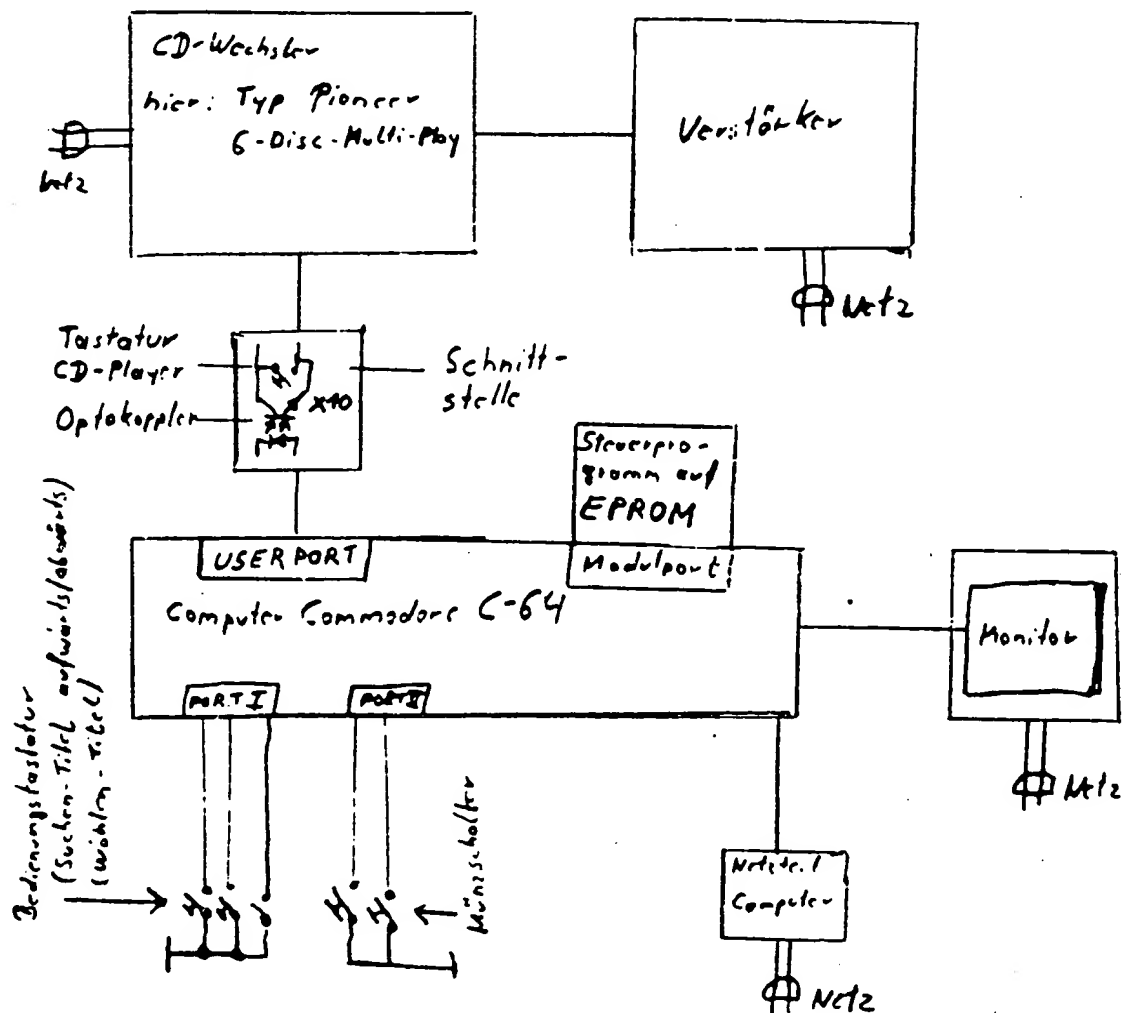 CD-Wechsler
hier: Typ Pioneer
6-Disc-Multi-Play
Verstärker
Netz
Netz
Tastatur
CD-Player
Optokoppler
x10
Schnitt-
stelle
Steuerpro-
gramm auf
EPROM
USERPORT
Modulport
Computer Commodore C-64
Monitor
PORT I
PORT II
Netz
Bedienungstastatur
(Suchen-Titel aufwärts/abwärts)
(Wählen-Titel)
Münzschalter
Netzteil
Computer
Netz